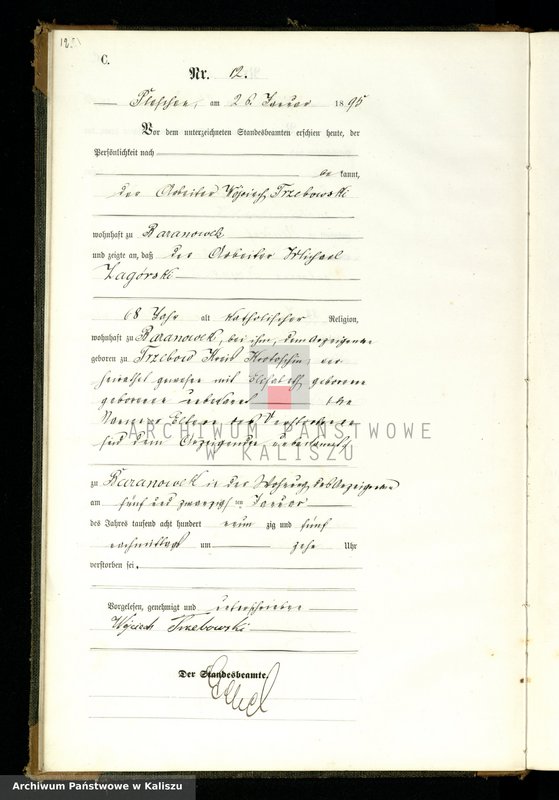 C.
Nr. 12.
Pleschen, am 26. Januar 1895
Vor dem unterzeichneten Standesbeamten erschien heute, der
Persönlichkeit nach
be kannt,
der Arbeiter Wojciech Trzebowski
wohnhaft zu Baranowek
und zeigte an, daß der Arbeiter Michael
Zagórski
68 Jahr alt katholischer Religion,
wohnhaft zu Baranowek, bei ihm, dem Anzeigenden
geboren zu Trzebow Kreis Krotoschin, ver
heirathet gewesen mit Elisabeth, geborene
geborene unbekannt die
Namen der Eltern des Verstorbenen
sind dem Anzeigenden unbekannt,
ARCHIWUM PAŃSTWOWE
W KALISZU
zu Baranowek in der Wohnung des Anzeigenden
am fünf und zwanzigsten Januar
des Jahres tausend acht hundert neun zig und fünf
nachmittags um zehn Uhr
verstorben sei.
Vorgelesen, genehmigt und unterschrieben
Wojciech Trzebowski
Der Standesbeamte.
Archiwum Państwowe w Kaliszu